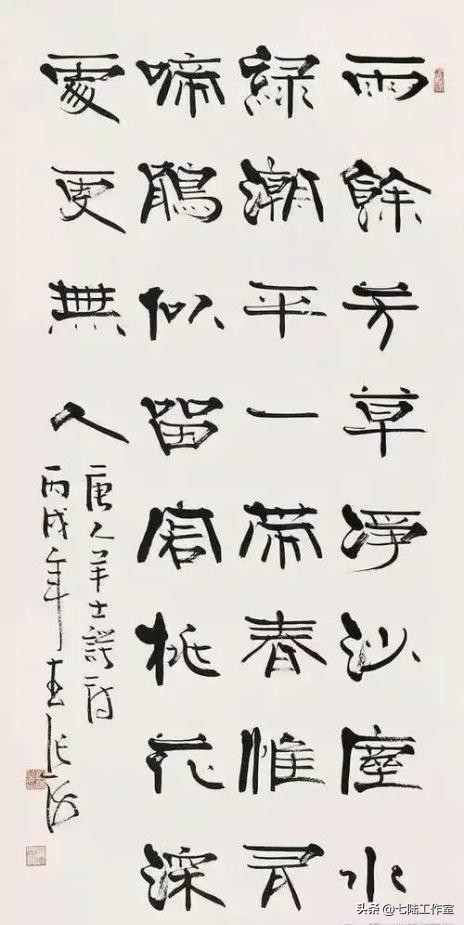 雨餘芳草淨沙塵水
綠潮平一帶春惟有
啼鵑似留客桃花深
處更無人
唐人羊士諤詩
丙戌年春張海
头条 @七陆工作室